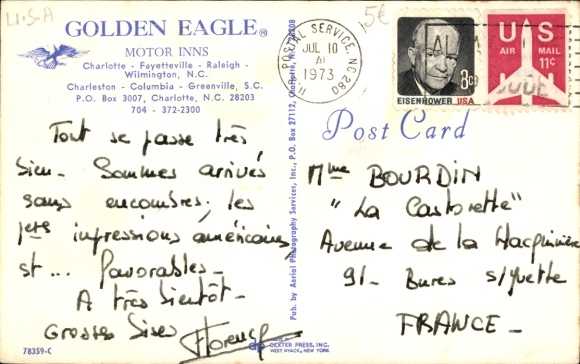 U.S.A
15€
GOLDEN EAGLE®
MOTOR INNS
Charlotte - Fayetteville - Raleigh -
Wilmington, N.C.
Charleston - Columbia - Greenville, S.C.
P.O. Box 3007, Charlotte, N.C. 28203
704 - 372-2300
Tout se passe très
bien. Sommes arrivés
sans encombres; les
1ères impressions américaines
st ... favorables -
A très bientôt -
Grosses Bises
Florence
78359-C
Pub. by Aerial Photography Services, Inc., P.O. Box 27112, Charlotte, N.C. 28208
dp DEXTER PRESS, INC.
WEST NYACK, NEW YORK
POSTAL SERVICE, NC 280
JUL 10
1973
EISENHOWER USA
8c
US
AIR MAIL
11c
Post Card
Mme BOURDIN
"La Castorette"
Avenue de la Hacquinière
91- Bures s/yvette
FRANCE -